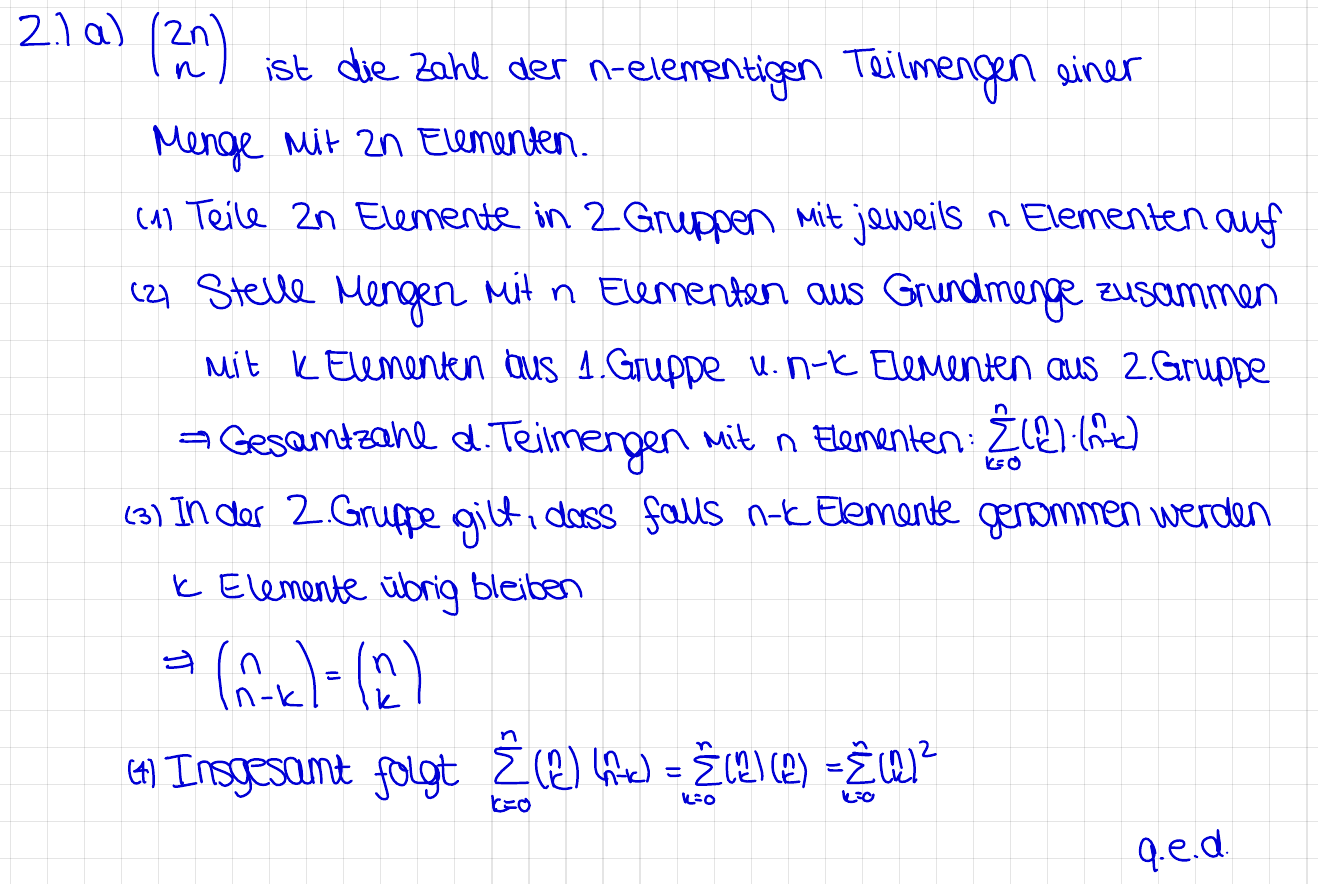 2.) a) (2n über n) ist die Zahl der n-elementigen Teilmengen einer
Menge mit 2n Elementen.
(1) Teile 2n Elemente in 2 Gruppen mit jeweils n Elementen auf
(2) Stelle Mengen mit n Elementen aus Grundmenge zusammen
mit k Elementen aus 1. Gruppe u. n-k Elementen aus 2. Gruppe
⇒ Gesamtzahl d. Teilmengen mit n Elementen: $\sum_{k=0}^{n} \binom{n}{k} \cdot \binom{n}{n-k}$
(3) In der 2. Gruppe gilt, dass falls n-k Elemente genommen werden
k Elemente übrig bleiben
⇒ $\binom{n}{n-k} = \binom{n}{k}$
(4) Insgesamt folgt $\sum_{k=0}^{n} \binom{n}{k} \binom{n}{n-k} = \sum_{k=0}^{n} \binom{n}{k} \binom{n}{k} = \sum_{k=0}^{n} \binom{n}{k}^2$
q.e.d.